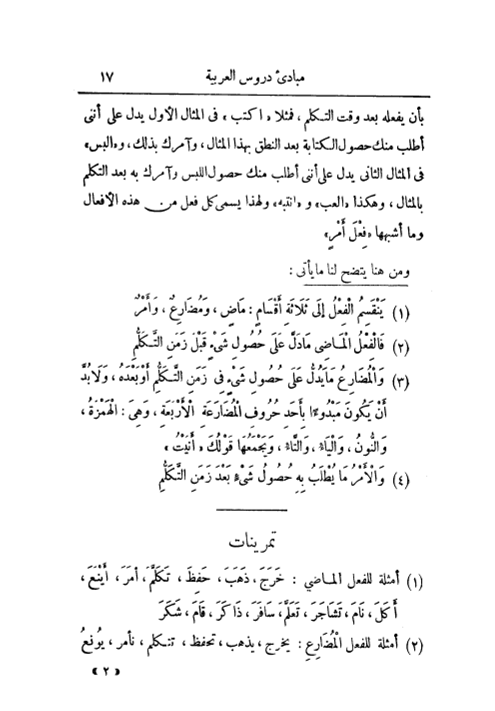 مبادئ دروس العربية ١٧
بأن يفعله بعد وقت التكلم ، فمثلا « اكتب » فى المثال الأول يدل على أننى
أطلب منك حصول الكتابة بعد النطق بهذا المثال ، وآمرك بذلك ، و«البس»
فى المثال الثانى يدل على أننى أطلب منك حصول اللبس وآمرك به بعد التكلم
بالمثال ، وهكذا «العب» و «انتبه» ولهذا يسمى كل فعل من هذه الأفعال
وما أشبهها «فِعْلَ أَمْرٍ»
ومن هنا يتضح لنا ما يأتى :
(١) يَنْقَسِمُ الْفِعْلُ إِلَى ثَلَاثَةِ أَقْسَامٍ : مَاضٍ ، وَمُضَارِعٌ ، وَأَمْرٌ
(٢) فَالْفِعْلُ الْمَاضِى مَادَلَّ عَلَى حُصُولِ شَىْءٍ قَبْلَ زَمَنِ التَّكَلُّمِ
(٣) وَالْمُضَارِعُ مَايَدُلُّ عَلَى حُصُولِ شَىْءٍ فِى زَمَنِ التَّكَلُّمِ أَوْبَعْدَهُ ، وَلَابُدَّ
أَنْ يَكُونَ مَبْدُوءًا بِأَحَدِ حُرُوفِ الْمُضَارَعَةِ الْأَرْبَعَةِ ، وَهِىَ : الْهَمْزَةُ ،
وَالنُّونُ ، وَالْيَاءُ ، وَالتَّاءُ ، وَيَجْمَعُهَا قَوْلُكَ « أَنَيْتُ »
(٤) وَالْأَمْرُ مَا يُطْلَبُ بِهِ حُصُولُ شَىْءٍ بَعْدَ زَمَنِ التَّكَلُّمِ
تمرينات
(١) أمثلة للفعل الماضي : خَرَجَ ، ذَهَبَ ، حَفِظَ ، تَكَلَّمَ ، أَمَرَ ، أَيْنَعَ ،
أَكَلَ ، نَامَ ، تَشَاجَرَ ، تَعَلَّمَ ، سَافَرَ ، ذَاكَرَ ، قَامَ ، شَكَرَ
(٢) أمثلة للفعل الْمُضَارِعِ : يخرج ، يذهب ، تحفظ ، تتكلم ، نأمر ، يُونِعُ
«٢»